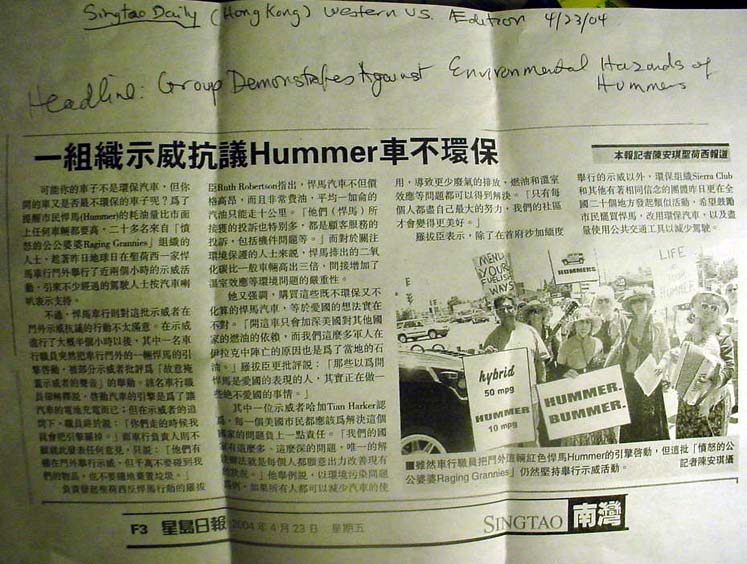 Singtao Daily (Hong Kong) Western U.S. Edition 4/23/04
Headline: Group Demonstrates Against Environmental Hazards of
Hummers
一組織示威抗議Hummer車不環保
本報記者陳安琪聖荷西報道
可能你的車子不是環保汽車，但你
開的車又是否最不環保的車子呢？爲了
提醒市民悍馬(Hummer)的耗油量比市面
上任何車輛都要高，二十多名來自「憤
怒的公公婆婆Raging Grannies」組織的
人士，趁著昨日地球日在聖荷西一家悍
馬車行門外舉行了近兩個小時的示威活
動，引來不少經過的駕駛人士按汽車喇
叭表示支持。
不過，悍馬車行則對這批示威者在
門外示威抗議的行動不太滿意。在示威
進行了大概半個小時以後，其中一名車
行職員突然把車行門外的一輛悍馬的引
擎啓動，被部分示威者批評爲「故意掩
蓋示威者的聲音」的舉動。該名車行職
員卻解釋說，啓動汽車的引擎是爲了讓
汽車的電池充電而已；但在示威者的追
問下，職員終於說：「你們走的時候我
員會把引擎關掉。」而車行負責人則不
願就此發表任何意見，只說：「他們有
權在門外舉行示威，但千萬不要碰到我
們的物品，也不要隨地棄置垃圾。」
負責發起聖荷西反悍馬行動的羅拔
臣Ruth Robertson指出，悍馬汽車不但價
格高昂，而且非常費油，平均一加侖的
汽油只能走十公里。「他們（悍馬）所
接獲的投訴也特別多，都是顧客服務的
投訴，包括機件問題等。」而對於關注
環境保護的人士來說，悍馬排出的二氧
化碳比一般車輛高出三倍，間接增加了
溫室效應等環境問題的嚴重性。
她又強調，購買這些既不環保又不
化算的悍馬汽車，等於愛國的想法實在
不對。「開這車只會加深美國對其他國
家的燃油的依賴，而我們這麼多軍人在
伊拉克中陣亡的原因也是爲了當地的石
油。」羅拔臣更批評說：「那些以爲開
悍馬是愛國的表現的人，其實正在做一
些絶不愛國的事情。」
其中一位示威者哈加Tian Harker認
爲，每一個美國市民都應該爲解決這個
國家的問題負上一點責任。「我們的國
家有這麼多、這麼深的問題，唯一的解
決辦法就是每個人都願意出力改善現有
的狀況。」他舉例說，以環境污染問題
爲例，如果所有人都可以減少汽車的使
用，導致更少廢氣的排放，燃油和溫室
效應等問題都可以得到解決。「只有每
個人都盡自己最大的努力，我們的社區
才會變得更美好。」
羅拔臣表示，除了在首府沙加緬度
舉行的示威以外，環保組織Sierra Club
和其他有著相同信念的團體昨日更在全
國二十個地方發起類似活動，希望鼓勵
市民購買悍馬，改用環保汽車，以及盡
量使用公共交通工具以減少駕駛。
MEND
YOUR
FUELISH
WAYS
HUMMERS
LIFE
hybrid
50 mpg
HUMMER
10 mpg
HUMMER.
BUMMER.
■雖然車行職員把門外這輛紅色悍馬Hummer的引擎啓動，但這批「憤怒的公
公婆婆Raging Grannies」仍然堅持舉行示威活動。
記者陳安琪攝
F3 星島日報 2004年4月23日 星期五
SINGTAO 南灣